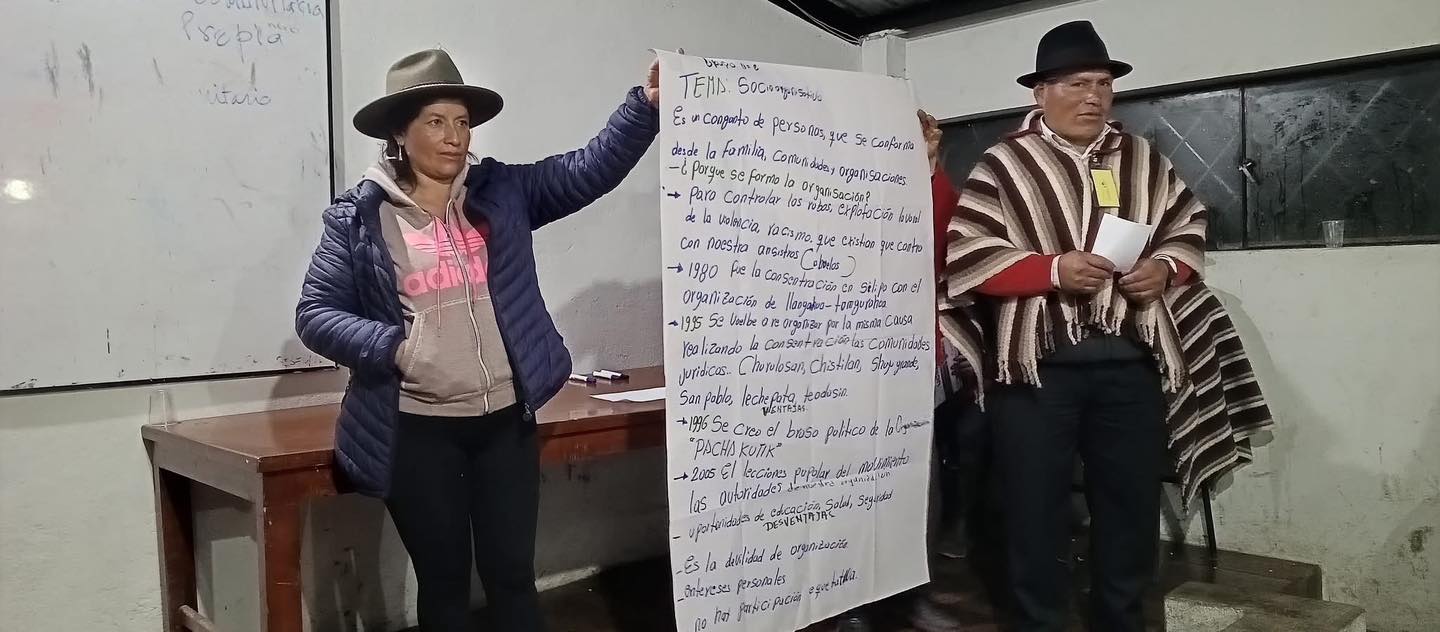 Prepla
itario
adidas
TEMA: Socio organisativo
Es un conganto de personas, que se conforma
desde la Familia, Comunidades y organisaciones.
- ¿Porque se formo la organisación?
→ Para controlar los robos, explotación lavoral
de la valencia, racismo, que existian que contra
con nuestra ansistros (abuelos)
→ 1980 fue la consentración en silipo con el
organización de llangahua - tamgurahua
→ 1995 Se vuelbe a re organizar por la misma causa
realizando la consentración las comunidades
juridicas.. Chorolosan, Chistilan, Shuyo grande,
San pablo, lechepata, teodasin.
VENTAJAS.
→ 1996 Se creo el braso politico de la Organización
"PACHA KUTIK"
→ 2005 El lecciones pupolar del movimiento
las autoridades de nuestra organización
- uportonidades de educación, Salud, Seguridad
DESVENTAJAS
- Es la devilidad de organización
- entereses personales
no hat participación equetatiba.